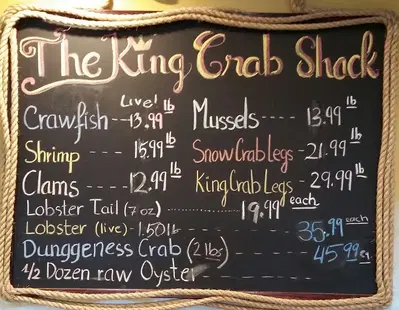 The King Crab Shack
Crawfish Live! 13.99 lb Mussels --- 13.99 lb
Shrimp ---- 15.99 lb Snow Crab Legs - 21.99 lb
Clams ---- 12.99 lb King Crab Legs - 29.99 lb
Lobster Tail (7 oz) ............ 19.99 each
Lobster (live) - 1.50 lb ------ 35.99 each
Dunggeness Crab (2 lbs) ---- 45.99 ea
1/2 Dozen raw Oyster ------